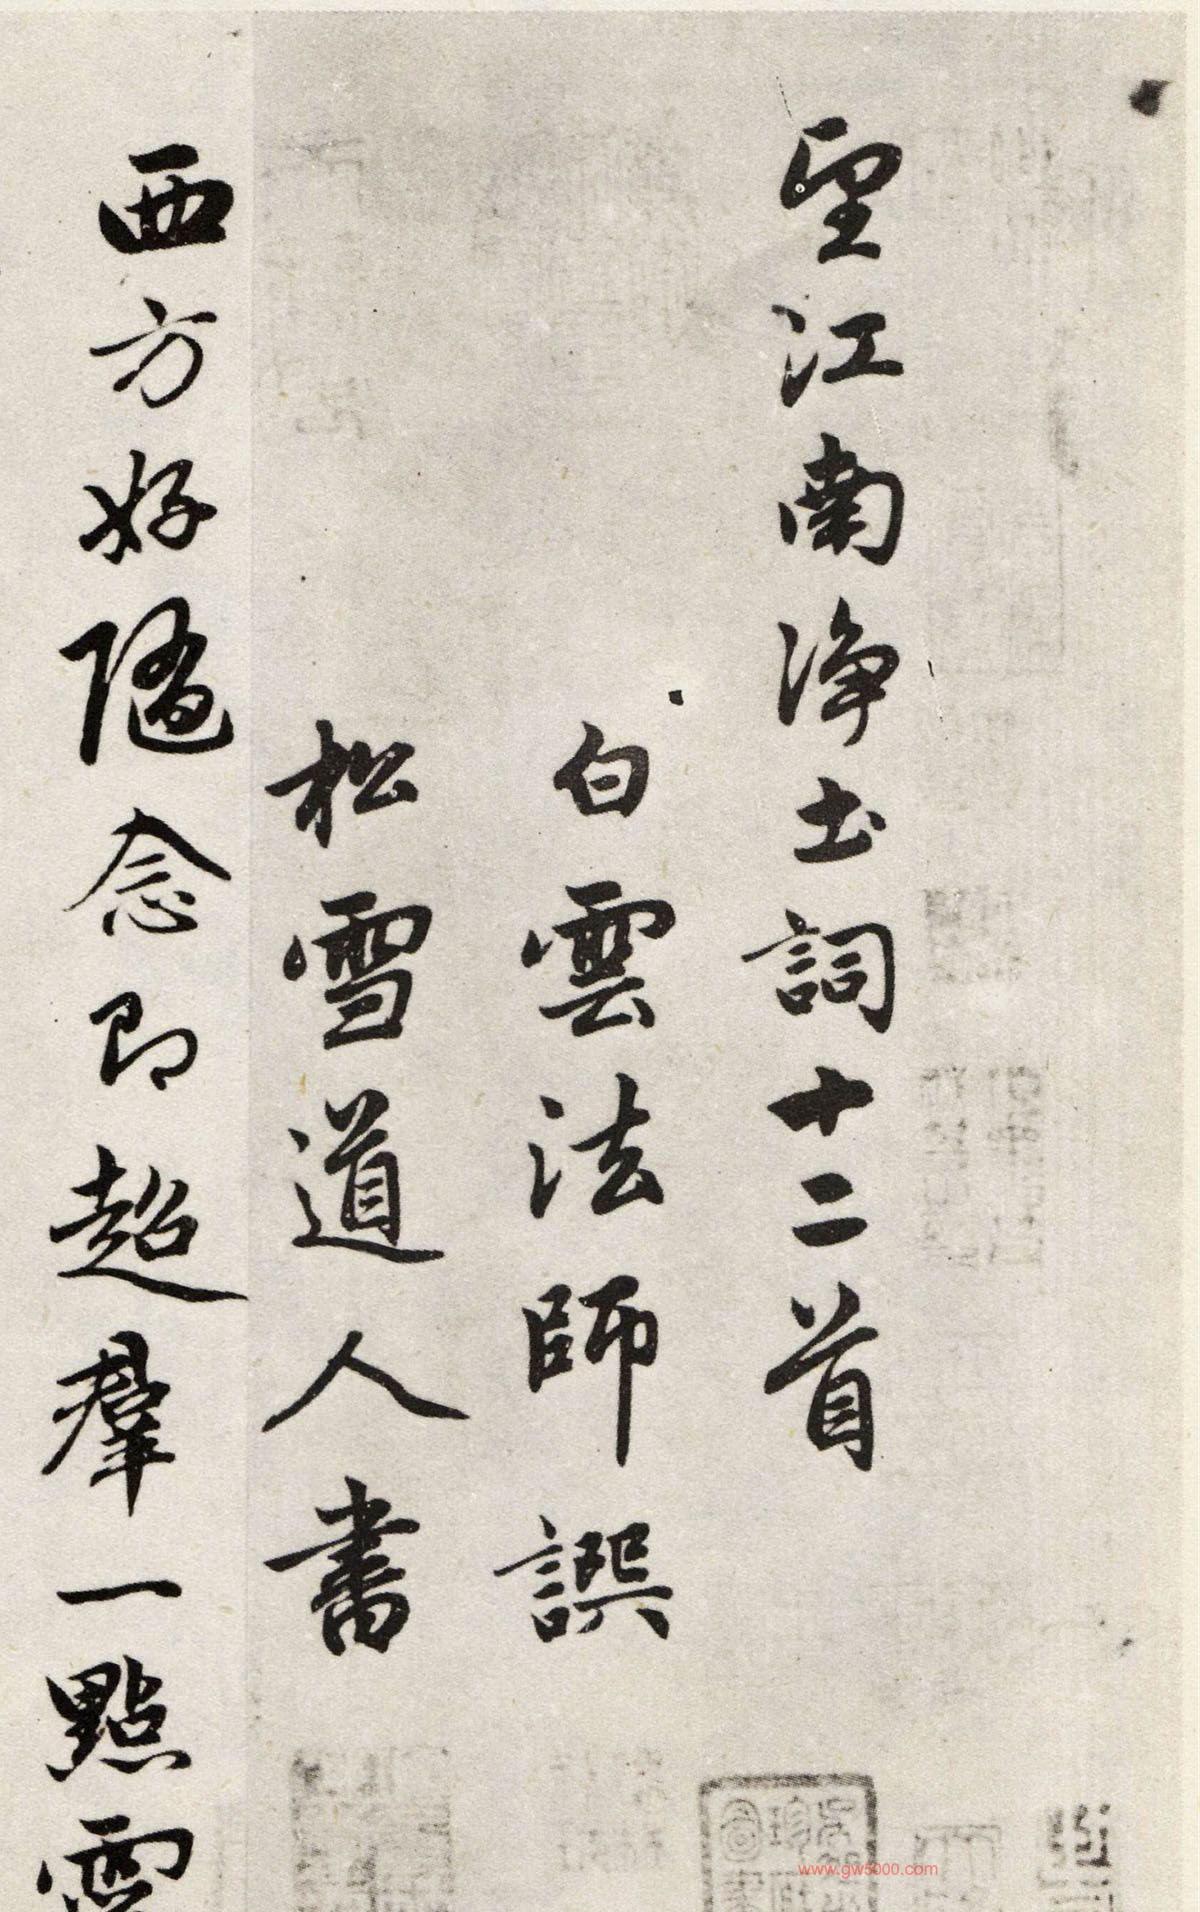 望江南净土詞十二首
白雲法師譔
松雪道人書
西方好隨念即超羣一點靈
www.gw5000.com